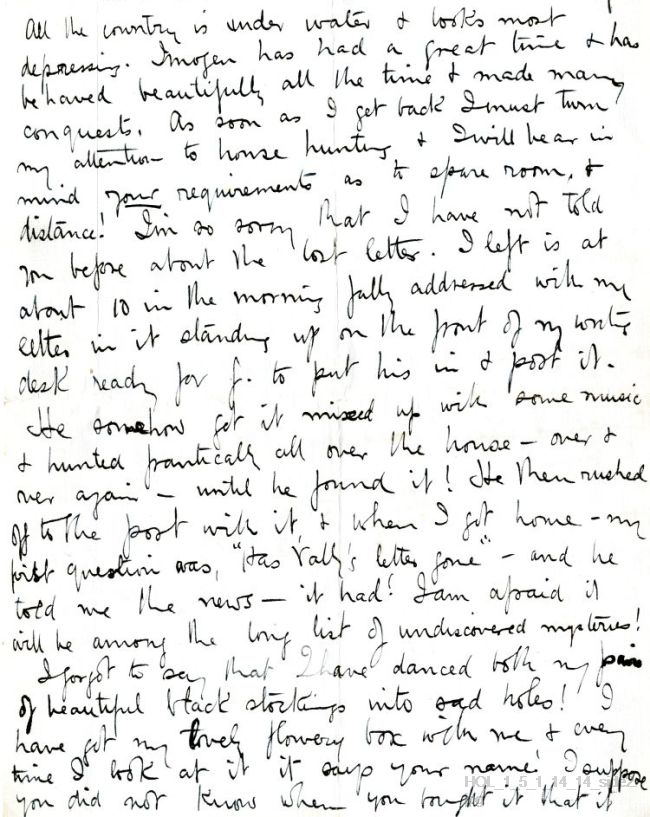 All the country is under water & looks most
depressing. Imogen has had a great time & has
behaved beautifully all the time & made many
conquests. As soon as I get back I must turn
my attention to house hunting & I will bear in
mind your requirements as to spare room, &
distance! I'm so sorry that I have not told
you before about the lost letter. I left is at
about 10 in the morning fully addressed with my
letter in it standing up on the front of my writing
desk ready for G. to put his in & post it.
He somehow got it mixed up with some music
& hunted frantically all over the house – over &
over again – until he found it! He then rushed
off to the post with it, & when I got home – my
first question was, "Has Vally's letter gone" – and he
told me the news – it had! I am afraid it
will be among the long list of undiscovered mysteries!
I forgot to say that I have danced both my pairs
of beautiful black stockings into sad holes! I
have got my lovely flowery box with me & every
time I look at it it says your name! I suppose
you did not know when you bought it that it
HOL_1_5_1_14_14_s